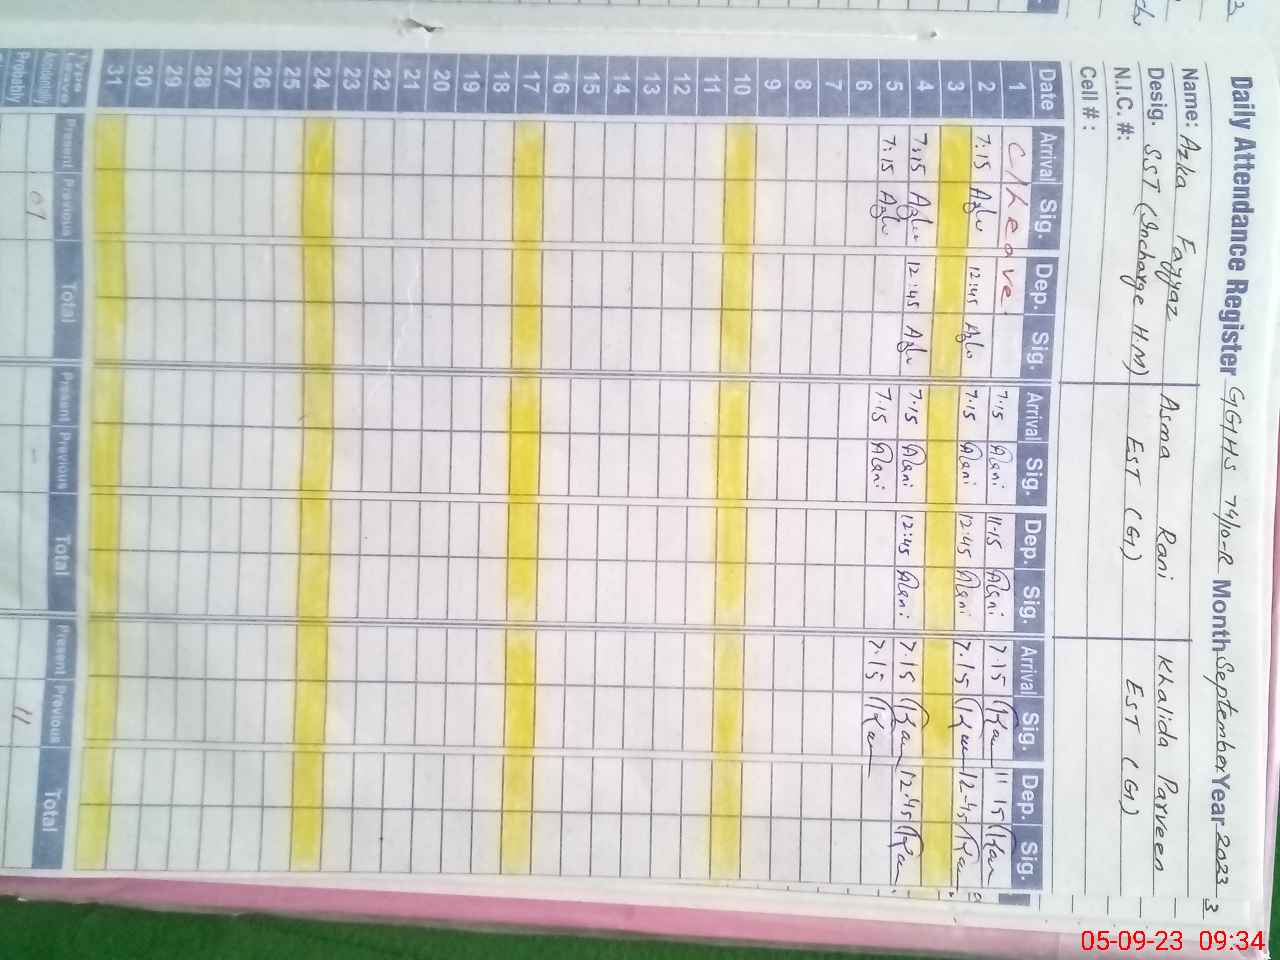 Daily Attendance Register GGHS 74/10-R Month September Year 2023
Name: Azka Fayyaz Asma Rani Khalida Parveen
Desig. SST (Incharge H.M) EST (G) EST (G)
N.I.C. #:
Cell # :
Date Arrival Sig. Dep. Sig. Arrival Sig. Dep. Sig. Arrival Sig. Dep. Sig.
1 C/Leave 7:15 Rani 11:15 Rani 7:15 11:15
2 7:15 12:45 7:15 Rani 12:45 Rani 7:15 12:45
3
4 7:15 12:45 7:15 Rani 12:45 Rani 7:15 12:45
5 7:15 7:15 Rani 7:15
6
7
8
9
10
11
12
13
14
15
16
17
18
19
20
21
22
23
24
25
26
27
28
29
30
31
Present Previous Total Present Previous Total Present Previous Total
05-09-23 09:34